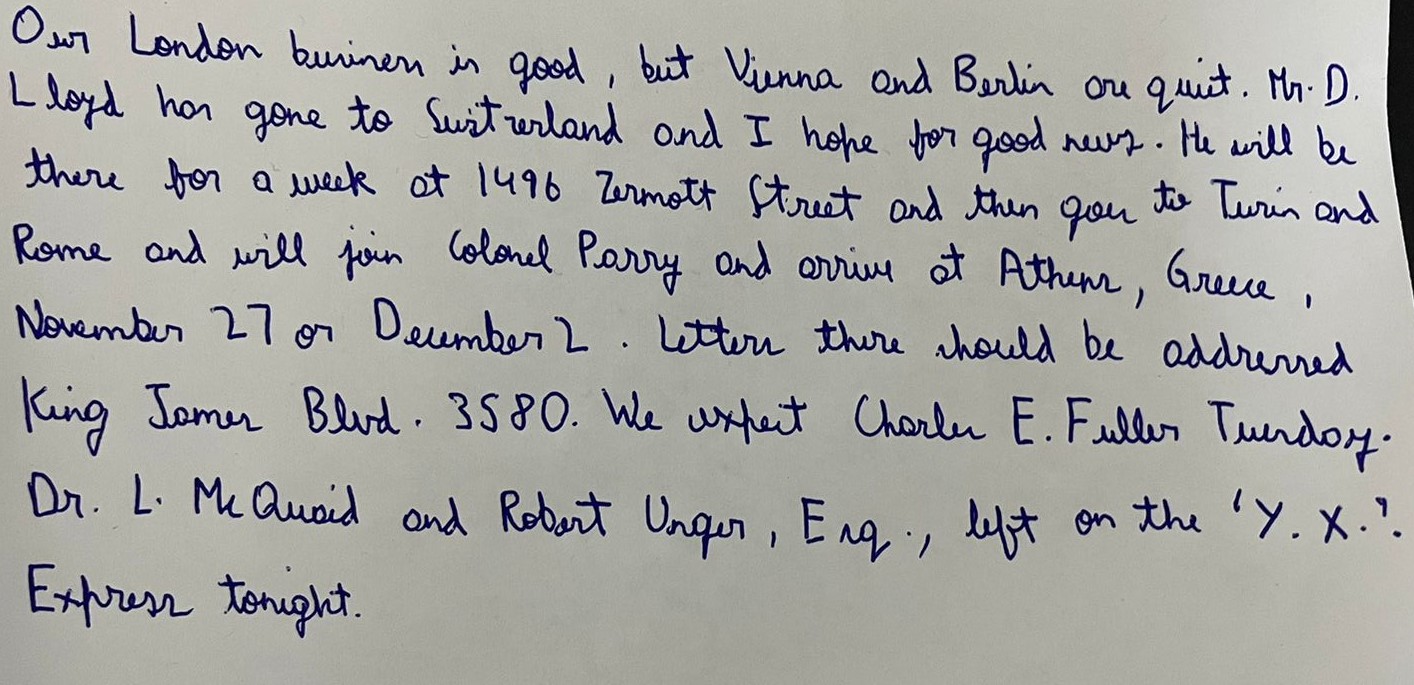 Our London business is good, but Vienna and Berlin are quiet. Mr. D.
Lloyd has gone to Switzerland and I hope for good news. He will be
there for a week at 1496 Zermott Street and then goes to Turin and
Rome and will join Colonel Parry and arrive at Athens, Greece,
November 27 or December 2. Letters there should be addressed
King James Blvd. 3580. We expect Charles E. Fuller Tuesday.
Dr. L. McQuaid and Robert Unger, Esq., left on the 'Y. X.'.
Express tonight.